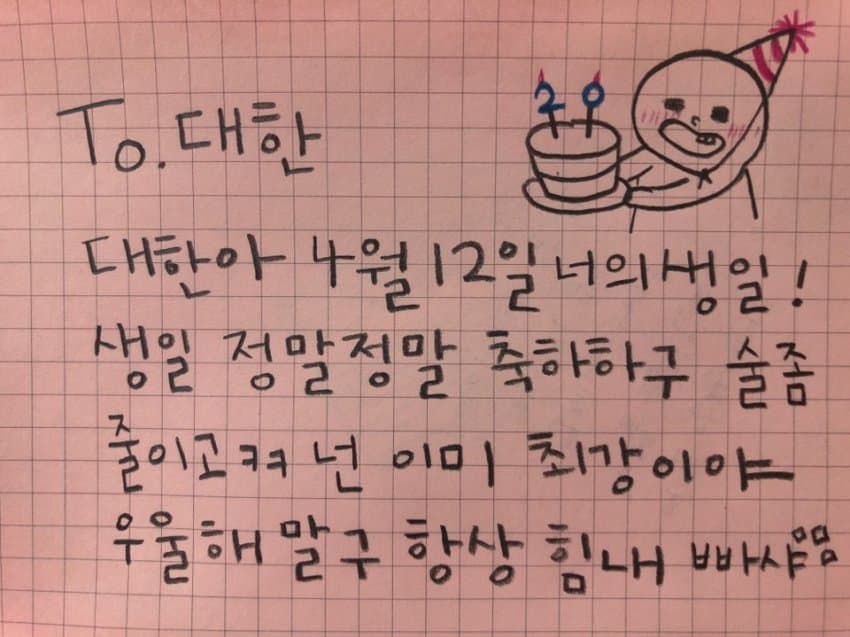 20
To. 대한
대한아 4월 12일 너의 생일!
생일 정말정말 축하하구 술좀
줄이고 ㅋㅋ 넌 이미 최강이야
우울해 말구 항상 힘내 빠샤